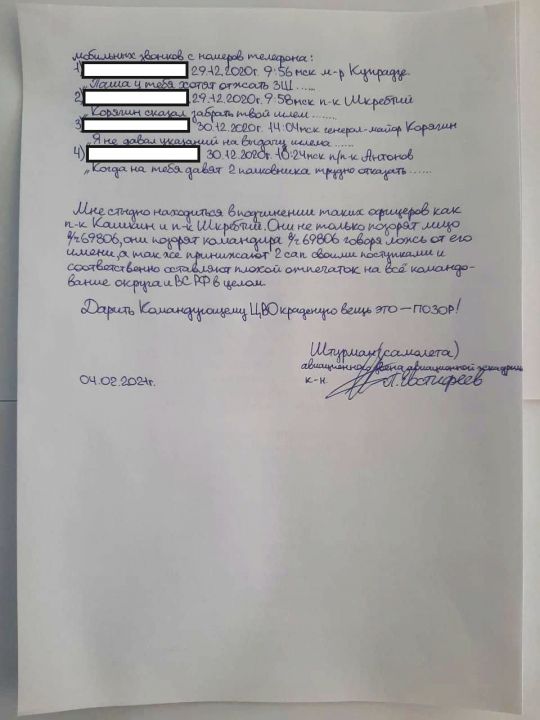 мобильных звонков с номеров телефона:
1) 29.12.2020г. 9:56 мск м-р Купрадзе.
„Паша у тебя хотят отжать ЗШ......
2) 29.12.2020г. 9:58мск п-к Шкребтий
„Корягин сказал забрать твой шлем.......
3) 30.12.2020г. 14:04мск генерал-майор Корягин
„Я не давал указаний на выдачу шлема......
4) 30.12.2020г. 10:24мск п/п-к Антонов
„Когда на тебя давят 2 полковника трудно отказать......
Мне стыдно находиться в подчинении таких офицеров как
п-к Каликин и п-к Шкребтий. Они не только позорят лицо
в/ч 69806, они позорят командира в/ч 69806 говоря ложь от его
имени, а так же принижают 2 сап своими поступками и
соответственно оставляют плохой отпечаток на всё командо-
вание округа и ВС РФ в целом.
Дарить Командующему ЦВО краденую вещь это – ПОЗОР!
Штурман (самолета)
авиационного звена авиационной эскадрильи
04.02.2021г.
к-н